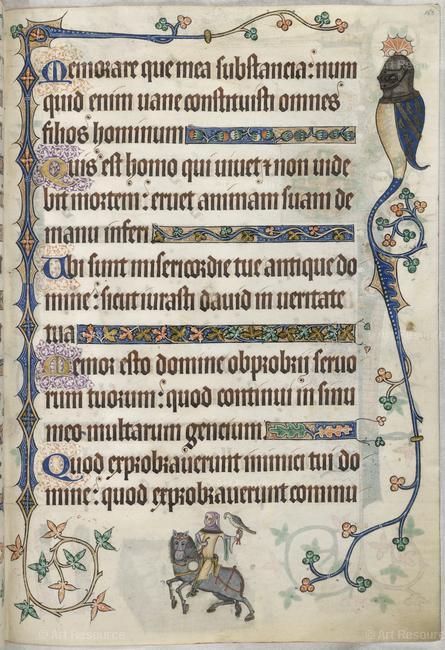 Memorare que mea substancia: num
quid enim uane constituisti omnes
filios hominum
Quis est homo qui uiuet ⁊ non uide
bit mortem: eruet animam suam de
manu inferi
Ubi sunt misericordie tue antique do
mine: sicut iurasti dauid in ueritate
tua
Memor esto domine obprobrii seruo
rum tuorum: quod continui in sinu
meo multarum gencium
Quod exprobrauerunt inimici tui do
mine: quod exprobrauerunt commu
© Art Resource
© Art Resource